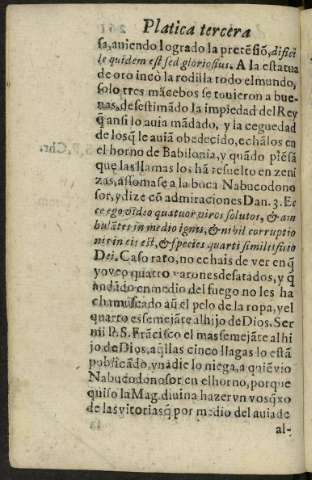 Platica tercera
sa, auiendo logrado la pretẽsiõ, difici
le quidem est sed gloriosius. A la estatua
de oro incò la rodilla todo el mundo,
solo tres mãcebos se tuuieron a bue-
nas, desestimãdo la impiedad del Rey
q̃ ansi lo auia mãdado, y la ceguedad
de los q̃ le auiã obedecido, echãlos en
el horno de Babilonia, y quãdo piẽsã
que las llamas los hã resuelto en zeni
zas, assomase a la boca Nabucodono
sor, y dize cõ admiraciones Dan. 3. Ec
ce ego video quatuor viros solutos, & am
bulãtes in medio ignis, & nihil corruptio
nis in eis est, & species quarti similis filio
Dei. Caso raro, no echais de ver en q̃
yo veo quatro varones desatados, y q̃
andãdo en medio del fuego no les ha
chamuscado aũ el pelo de la ropa, y el
quarto es semejãte al hijo de Dios. Ser
mi P. S. Frãcisco el mas semejãte al hi
jo de Dios, aq̃llas cinco llagas lo estã
publicãdo, y nadie lo niega, a quiẽ viò
Nabucodonosor en el horno, porque
quiso la Mag. diuina hazer vn vosq̃xo
de las vitorias q̃ por medio del auia de
al-